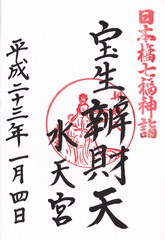 日本橋七福神詣
宝生辨財天
水天宮
平成二十三年一月四日